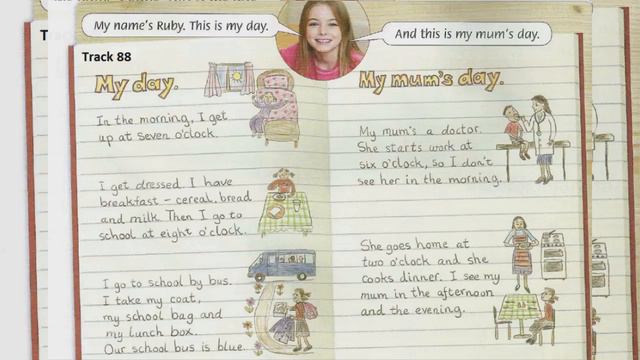 My name's Ruby. This is my day.
And this is my mum's day.
Track 88
My day.
In the morning, I get
up at seven o'clock.
I get dressed. I have
breakfast – cereal, bread
and milk. Then I go to
school at eight o'clock.
I go to school by bus.
I take my coat,
my school bag and
my lunch box.
Our school bus is blue.
My mum's day.
My mum's a doctor.
She starts work at
six o'clock, so I don't
see her in the morning.
She goes home at
two o'clock and she
cooks dinner. I see my
mum in the afternoon
and the evening.